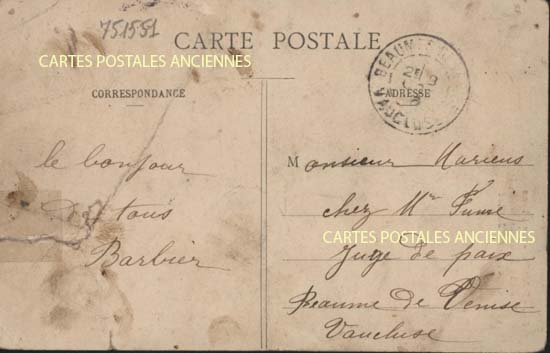 751551
CARTE POSTALE
CARTES POSTALES ANCIENNES
CORRESPONDANCE
ADRESSE
VAUCLUSE
le bonjour
de tous
Barbier
Monsieur Marius
chez Mr
CARTES POSTALES ANCIENNES
Juge de paix
Beaume de Venise
Vaucluse